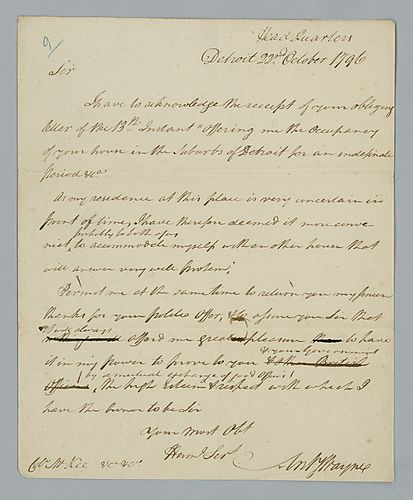 9
Head Quarters
Detroit 22nd October 1796
Sir
I have to acknowledge the receipt of your obliging
letter of the 13th Instant "Offering me the Occupancy
of your house in the Suburbs of Detroit for an indefinite
period &ca
As my residence at this place is very uncertain in
point of time, I have therefore deemed it more conve-
probably to both of us
nient, to accommodate myself with an other house that
will answer very well protem;
Permit me at the same time to return you my sincere
thanks for your polite offer, & to assure you Sir that
it will always
afford me great pleasure to have
& your Government
it in my power to prove to you
by a mutual exchange of good Offices
Offices, the high esteem & respect with which I
have the honor to be Sir
Your Most Obt
Huml Servt
Anty Wayne
Col McKee &ca &ca